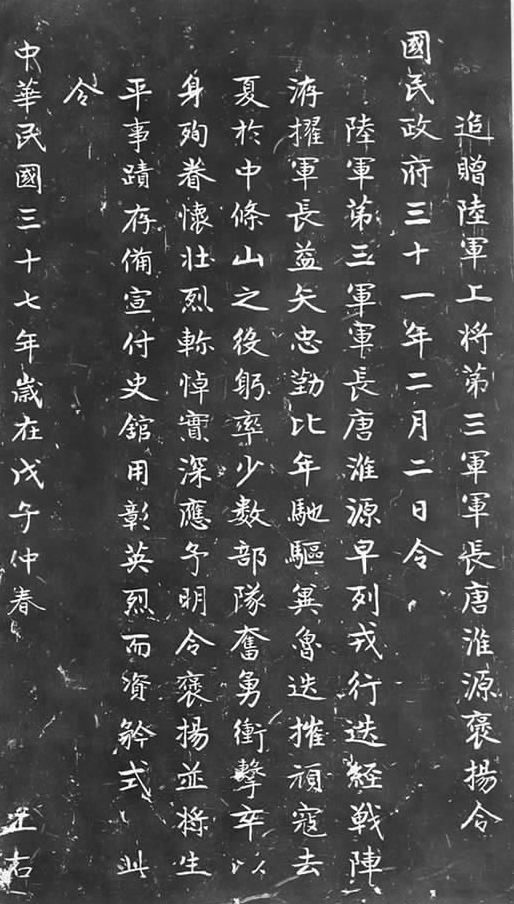 追贈陸軍上將第三軍軍長唐淮源褒揚令
國民政府三十一年二月二日令
陸軍第三軍軍長唐淮源早列戎行迭經戰陣
洊擢軍長益矢忠勤比年馳驅兾魯迭摧頑寇去
夏於中條山之役躬率少數部隊奮勇衝擊卒以
身殉眷懷壯烈軫悼實深應予明令褒揚並將生
平事蹟存備宣付史館用彰英烈而資矜式此
令
中華民國三十七年歲在戊子仲春